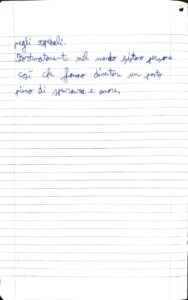 negli ospedali.
Fortunatamente nel mondo esistono persone
così che fanno diventare un posto
pieno di speranza e amore.